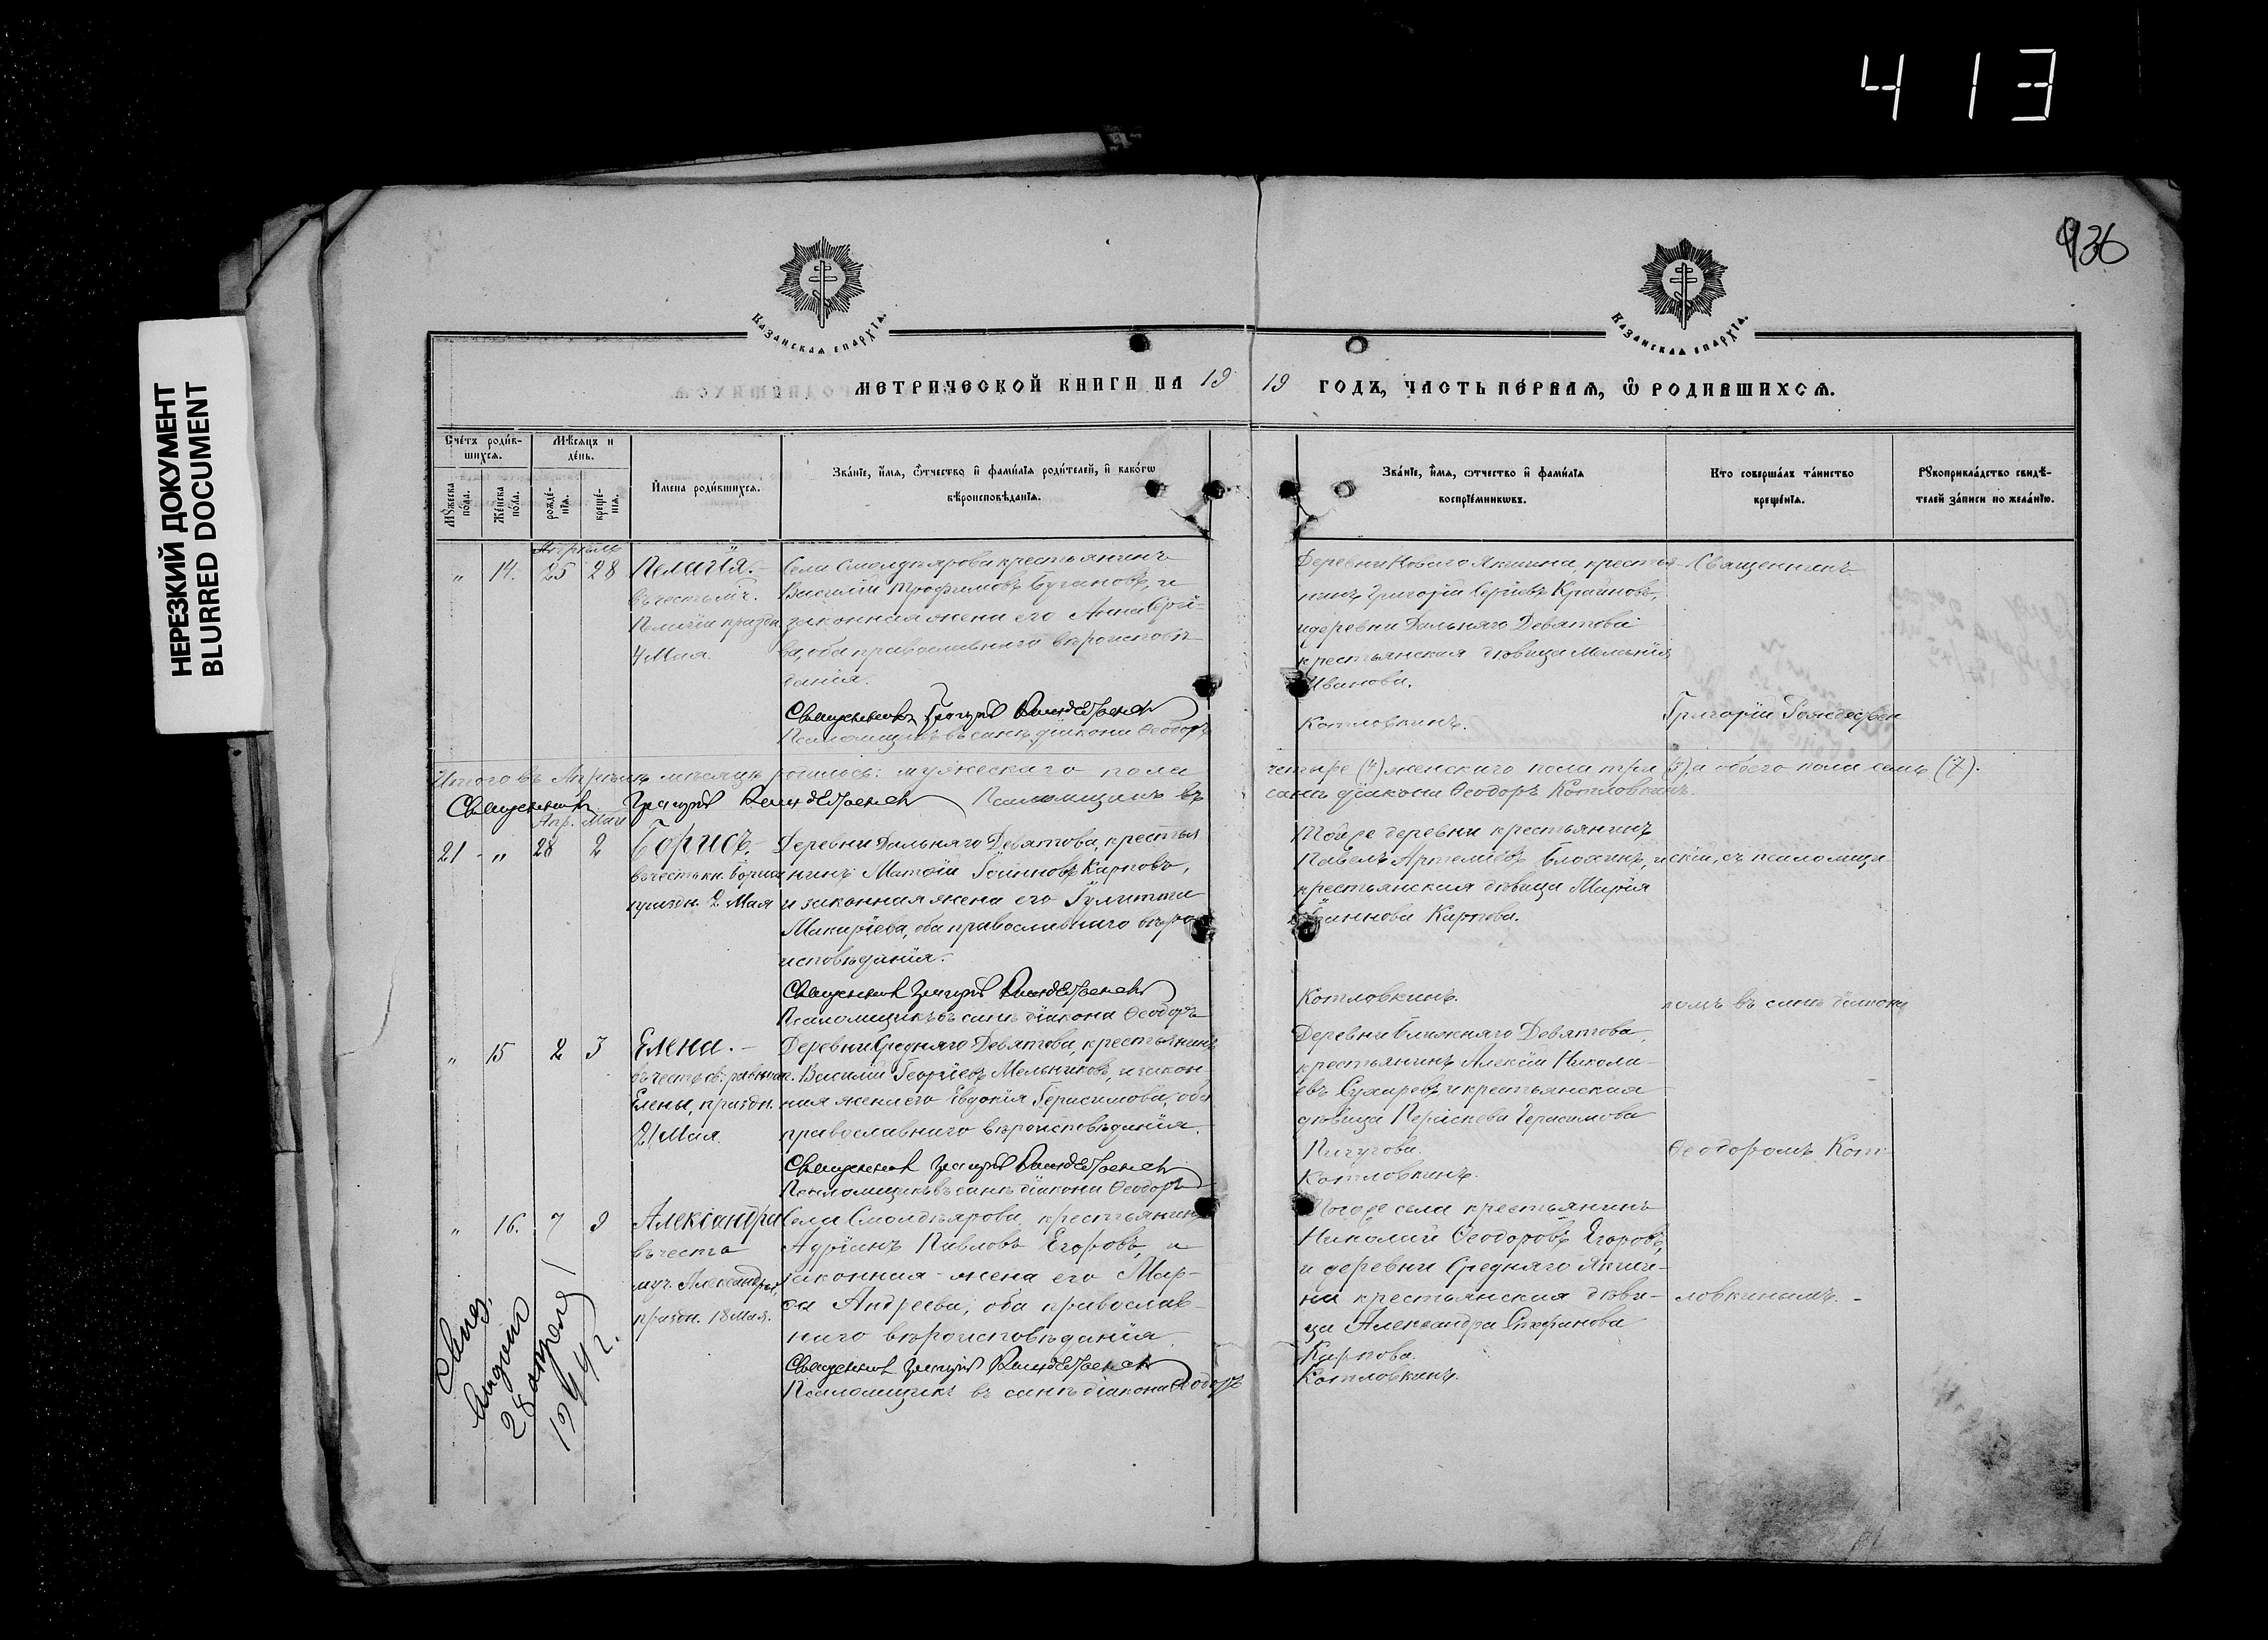 413
936
НЕРЕЗКИЙ ДОКУМЕНТ
BLURRED DOCUMENT
КАЗАНСКАѦ ЕПАРХІѦ.
КАЗАНСКАѦ ЕПАРХІѦ.
МЕТРИЧЕСКОЙ КНИГИ НА 1919 ГОДЪ, ЧАСТЬ ПЕРВАѦ, Ѡ РОДИВШИХСѦ.
Счетъ родив-
шихсѧ.
Мѣсѧцъ и
день.
Мꙋжеска пола.
Женска пола.
рожде-
нїѧ.
креще-
нїѧ.
Имена родившихсѧ.
Званїе, имѧ, ѿтчество и фамилїѧ родителей, и какогѡ
вѣроисповѣданїѧ.
Званїе, имѧ, ѿтчество и фамилїѧ
воспрїемникѡвъ.
Кто совершалъ таинство
крещенїѧ.
Рꙋкоприкладство свидѣ-
телей записи по желанїю.
Апрель
" 14. 25 28
Пелагія.-
въ честь м-ч.
Пелагіи праздн.
4 Мая.
Села Смолдеярова крестьянинъ
Василій Трофимовъ Бугановъ, и
законная жена его Анна Сергі-
ева, оба православнаго вѣроисповѣ
данія.
Священникъ Григорій Рождественскій
Псаломщикъ въ санѣ діакона Ѳеодоръ
Деревни Новаго Якшина, крестья
нинъ Григорій Сергіевъ Крайновъ,
и деревни Дальняго Девятова
крестьянская дѣвица Меланія
Иванова.
Котловкинъ.
Священникъ
Григорій Рождествен
Итого въ Апрѣлѣ мѣсяцѣ родилось: мужескаго пола четыре (4) женскаго пола три (3), а обоего пола семь (7).
Священникъ Григорій Рождественскій Псаломщикъ въ санѣ діакона Ѳеодоръ Котловкинъ.
Апр. Мая
21 - " 28 2
Борисъ.-
въ честь кн. Бориса
праздн. 2 Мая
Деревни Дальняго Девятова, крестья
нинъ Матѳій Іоанновъ Карповъ,
и законная жена его Іулитта
Макаріева, оба православнаго вѣро
исповѣданія.
Священникъ Григорій Рождественскій
Псаломщикъ въ санѣ діакона Ѳеодоръ
Той же деревни крестьянинъ
Павелъ Артеміевъ Блохинъ, и
крестьянская дѣвица Марія
Іоаннова Карпова.
Котловкинъ.
скій, съ псаломщи-
комъ въ санѣ діакона
" 15 2 3
Елена.-
въ честь св. равноап.
Елены, праздн.
21 Мая.
Деревни Средняго Девятова, крестьянинъ
Василій Георгіевъ Мельниковъ, и закон-
ная жена его Евдокія Герасимова, оба
православнаго вѣроисповѣданія.
Священникъ Григорій Рождественскій
Псаломщикъ въ санѣ діакона Ѳеодоръ
Деревни Ближняго Девятова,
крестьянинъ Алексій Никола-
евъ Сухаревъ и крестьянская
дѣвица Параскева Герасимова
Пичугова.
Котловкинъ.
Ѳеодоромъ Кот-
" 16. 7 9
Александра
въ честь
муч. Александры,
праздн. 18 Мая.
Села Смолдеярова, крестьянинъ
Адріанъ Павловъ Егоровъ, и
законная жена его Мар-
ѳа Андреева, оба православ-
наго вѣроисповѣданія
Священникъ Григорій Рождественскій
Псаломщикъ въ санѣ діакона Ѳеодоръ
Того же села крестьянинъ
Николай Ѳеодоровъ Егоровъ,
и деревни Средняго Якши-
на крестьянская дѣви-
ца Александра Стефанова
Карпова.
Котловкинъ.
ловкинымъ.-
выдано
28 апреля
1944 г.